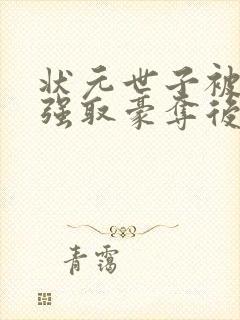 状元世子被
强取豪夺後
青霭